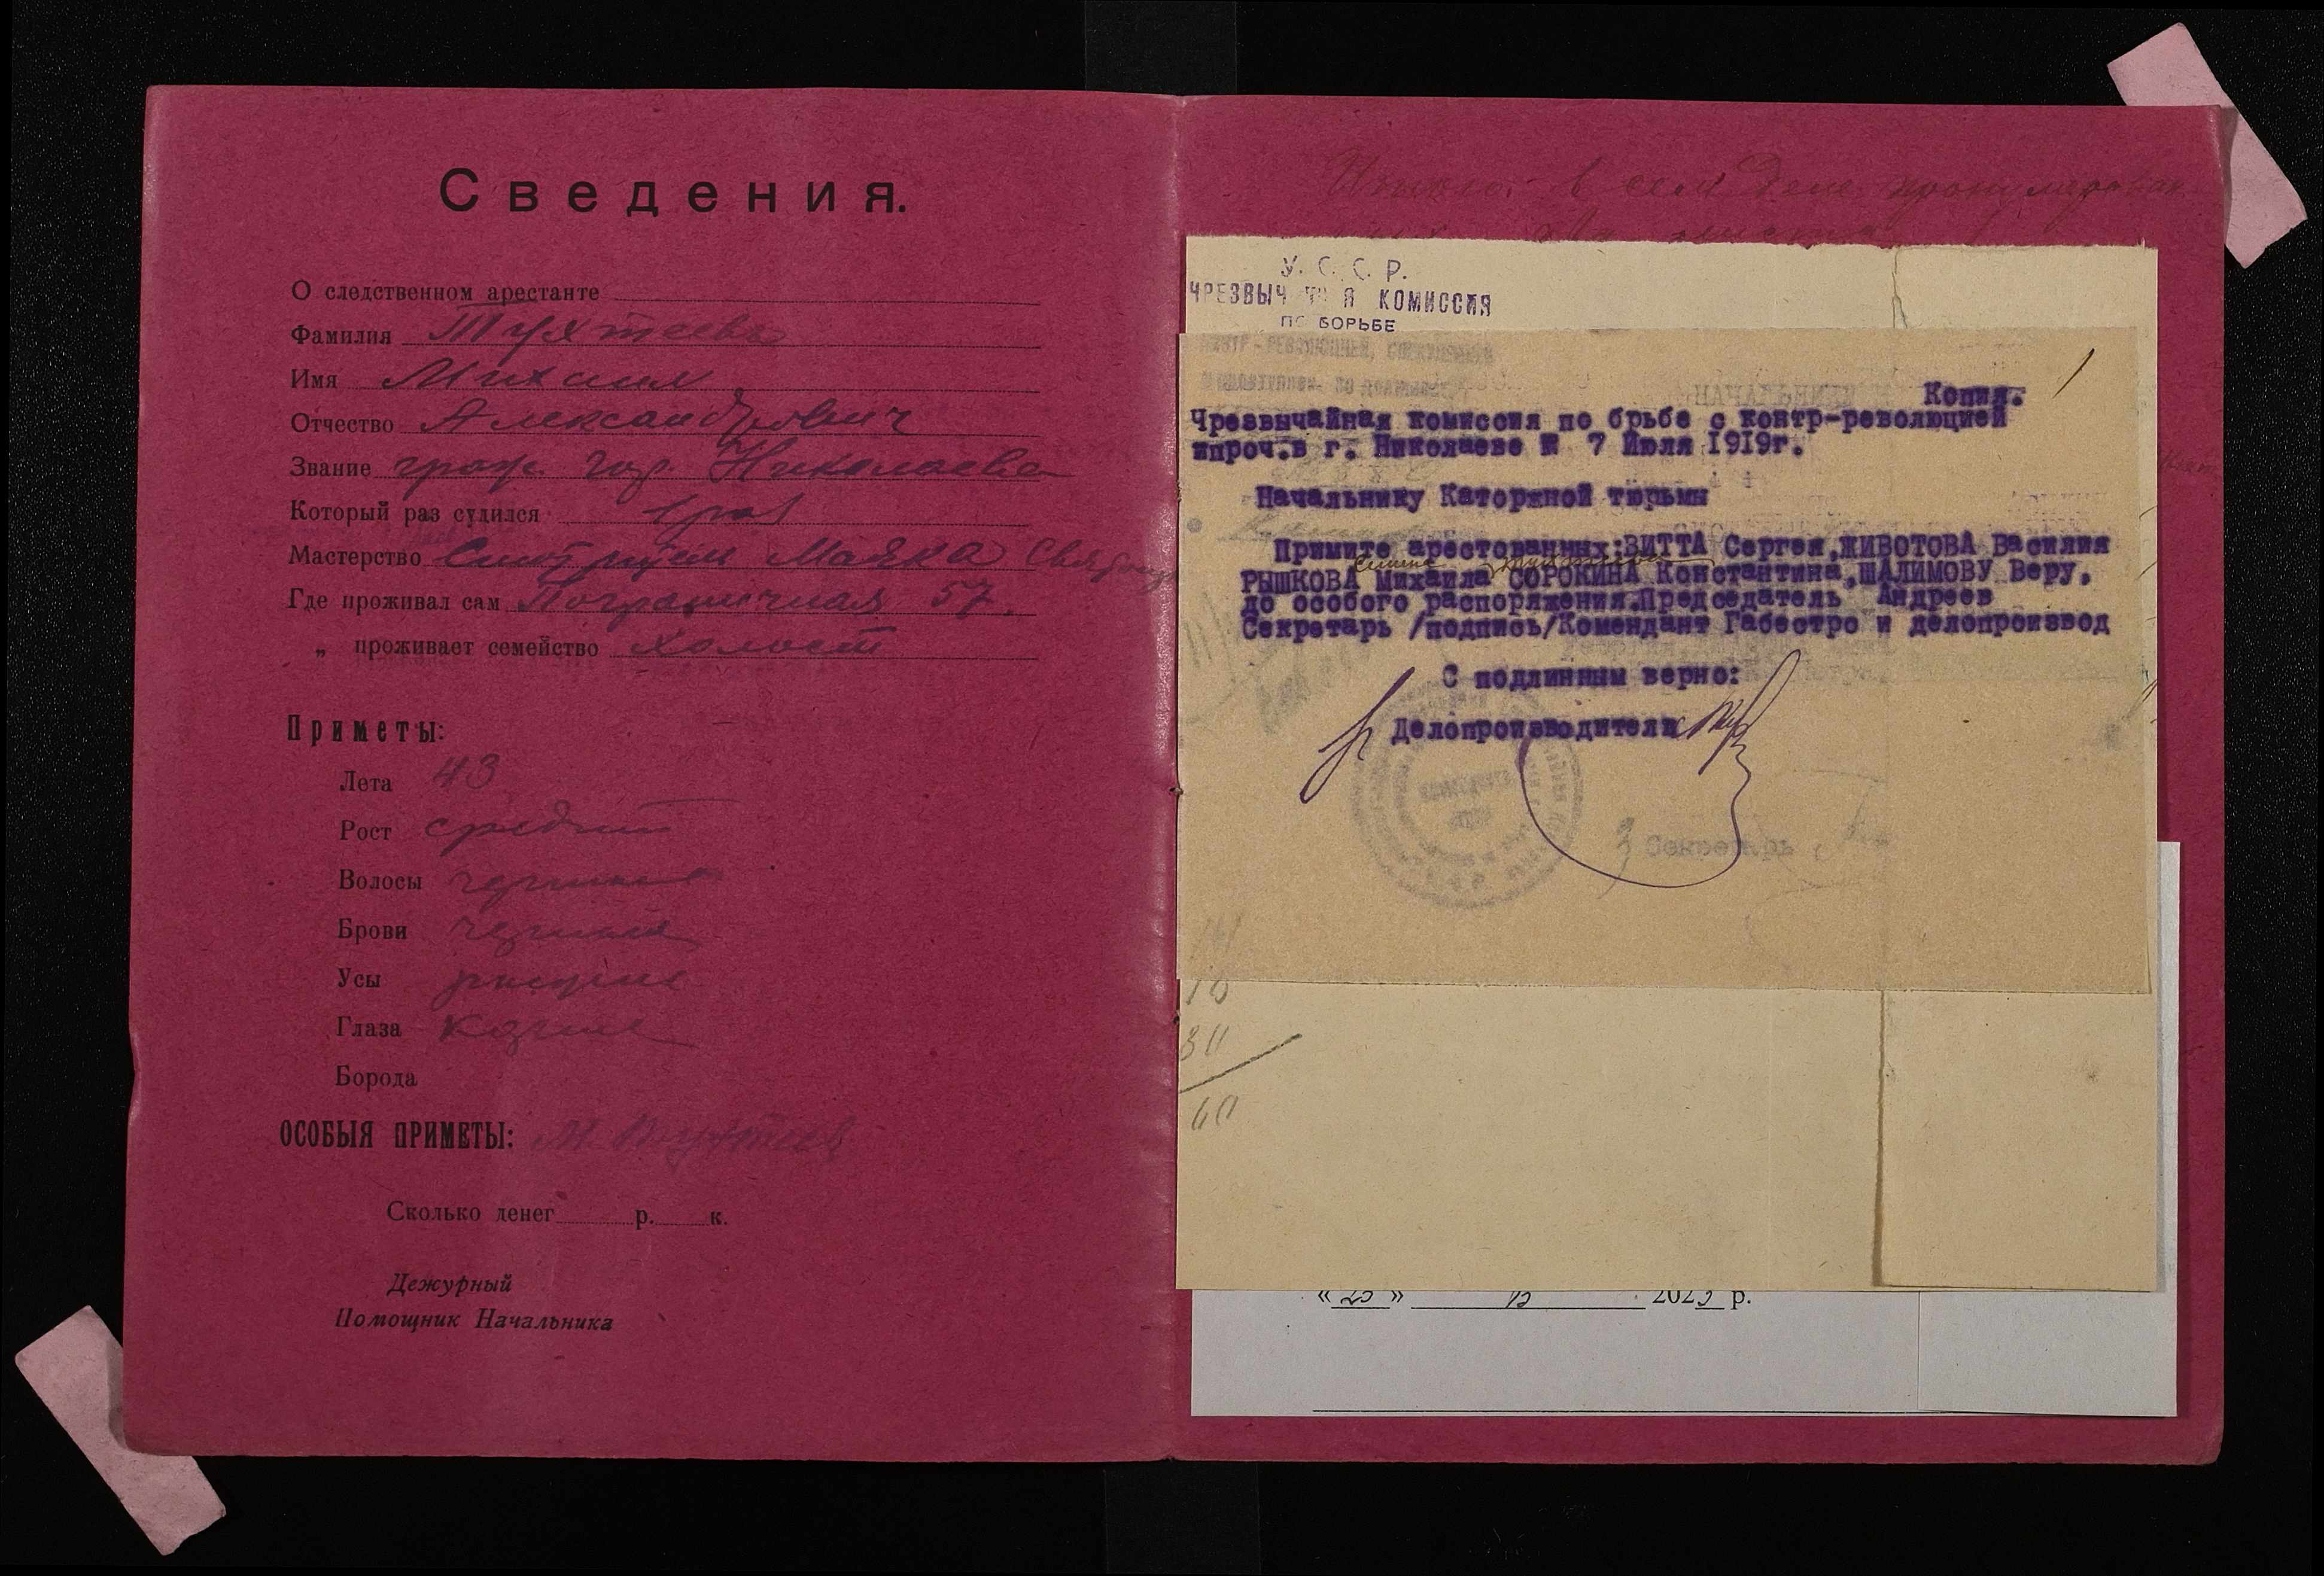 Сведения.
О следственном арестанте
Фамилия Тухтеевъ
Имя Михаил
Отчество Александрович
Звание граж. гор. Николаева
Который раз судился 1 раз
Мастерство Смотритель Маяка
Где проживал сам Пограничная 57.
„ проживает семейство холост
Приметы:
Лета 43
Рост средний
Волосы черные
Брови черные
Усы
Глаза карие
Борода
ОСОБЫЯ ПРИМЕТЫ:
Сколько денег р. к.
Дежурный
Помощник Начальника
Итого в сем деле пронумерован
У. С. С. Р.
ЧРЕЗВЫЧ Я КОМИССИЯ
ПО БОРЬБЕ
Копия.
Чрезвычайная комиссия по брьбе с контр-революцией
ипроч.в г. Николаеве № 7 Июля 1919г.
Начальнику Каторжной тюрьмы
Примите арестованных:ВИТТА Сергея,ЖИВОТОВА Василия
РЫШКОВА Михаила СОРОКИНА Константина,ШАЛИМОВУ Веру,
до особого распоряжения.Председатель Андреев
Секретарь /подпись/Комендант Габестро и делопроизвод
С подлинным верно:
Делопроизводитель
Секретарь
10
30
60
« 25 » 2023 р.